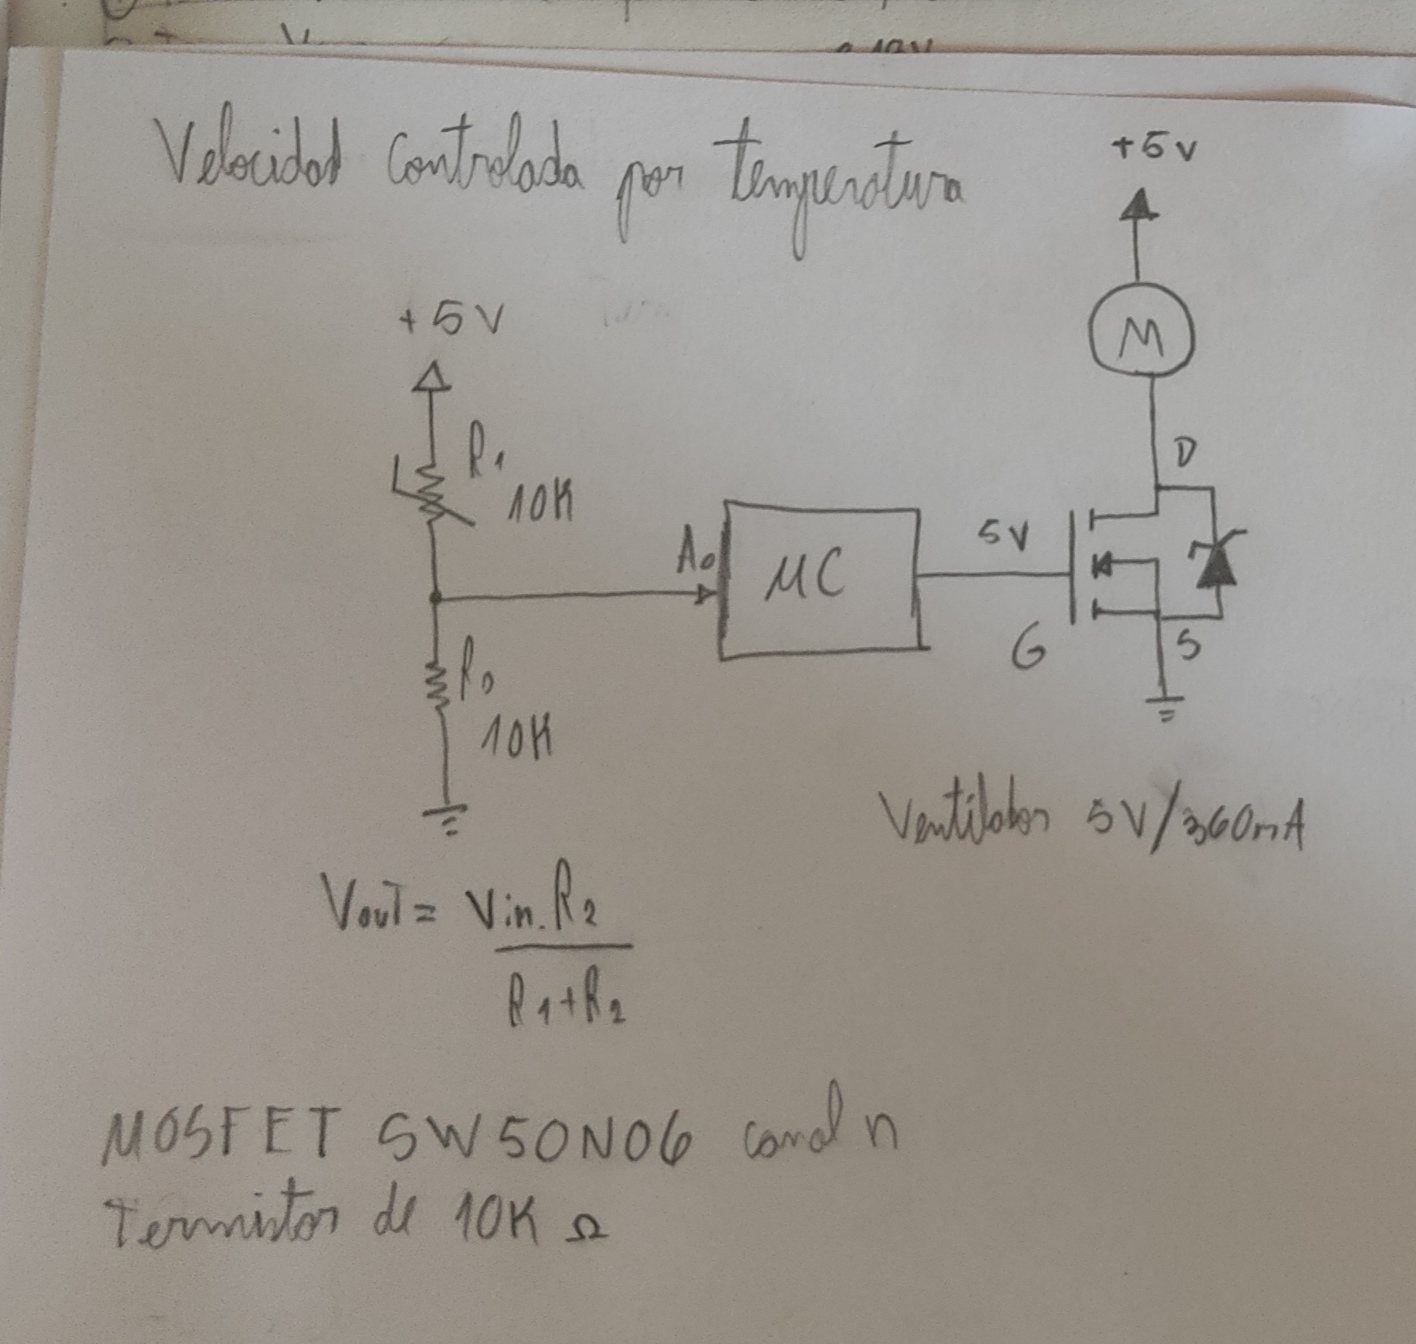 Velocidad controlada por temperatura
+5V
M
D
+5V
R1
10K
A0
MC
5V
G
S
R0
10K
Ventilador 5V/360mA
Vout = Vin.R2
R1+R2
MOSFET SW50N06 canal n
Termistor de 10K Ω